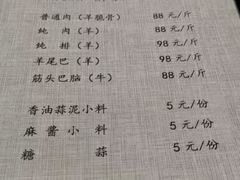 普通肉（羊脆骨） 88 元/斤
纯肉（羊） 88 元/斤
纯排（羊） 98 元/斤
羊尾巴（羊） 98 元/斤
筋头巴脑（牛） 88 元/斤
香油蒜泥小料 5 元/份
麻酱小料 5 元/份
糖蒜 5 元/份